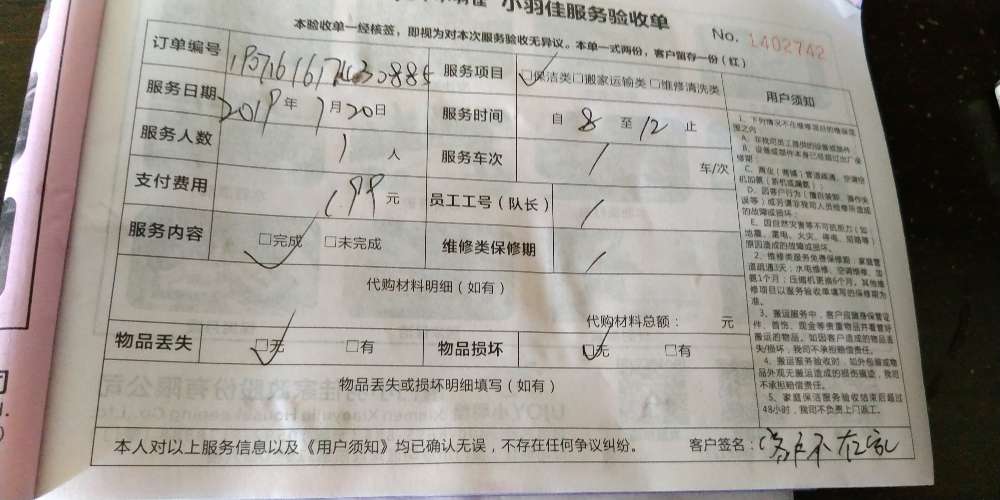 小羽佳服务验收单
No. 1402742
本验收单一经核签，即视为对本次服务验收无异议。本单一式两份，客户留存一份（红）
订单编号
服务项目 保洁类□搬家运输类 □维修清洗类
用户须知
服务日期 2019年7月20日
服务时间 自 8 至 12 止
服务人数 1 人
服务车次 / 车/次
支付费用 199 元
员工工号（队长） /
服务内容 □完成 □未完成
维修类保修期 /
代购材料明细（如有）
代购材料总额： 元
物品丢失 □无 □有
物品损坏 □无 □有
物品丢失或损坏明细填写（如有）
本人对以上服务信息以及《用户须知》均已确认无误，不存在任何争议纠纷。
客户签名：客户不在家
1、下列情况不在维修项目的维保范围之内
A、非我司员工提供的设备或部件；
B、设备或部件本身已经超过出厂保修期
C、商业（商铺）管道疏通、空调挖机加氨（新机或漏氨）；
D、因客户行为（擅自装卸、操作失误等）或另请非我司人员检修所造成的故障或损坏；
E、因自然灾害等不可抗原力（如地震、雷电、火灾、停电、短路等）原因造成的故障或损坏。
2、维修类服务免费保修期：家庭管道疏通3天；水电维修、空调维修、加氨1个月；压缩机更换6个月，其他维修项目以服务验收单填写的保修期为准。
3、搬运服务中，客户应随身保管证件、首饰、现金等贵重物品并看管好搬运的物品。如因客户造成的物品丢失/损坏，我司不承担赔偿责任。
4、搬运服务验收时，如外包装或物品外观无搬运造成的损伤痕迹，我司不承担赔偿责任。
5、家庭保洁服务验收结束后超过48小时，我司不负责上门返工。